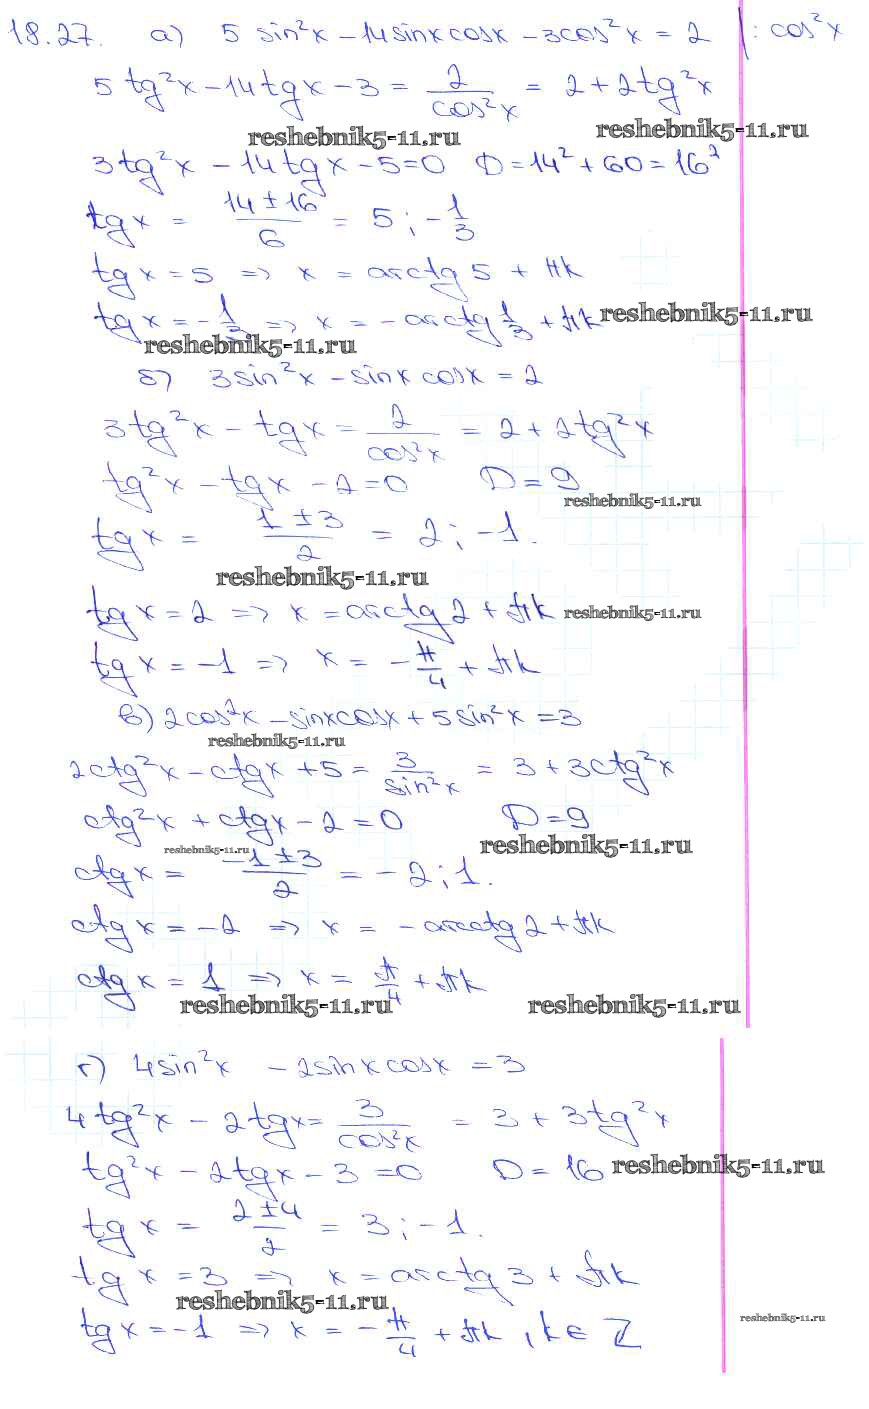 18.27. а) 5 sin²x - 14 sinx cosx - 3cos²x = 2 | : cos²x
5 tg²x - 14 tgx - 3 = 2/cos²x = 2 + 2tg²x
reshebnik5-11.ru reshebnik5-11.ru
3tg²x - 14tgx - 5 = 0 D = 14² + 60 = 16²
tgx = (14 ± 16)/6 = 5; -1/3
tgx = 5 => x = arctg 5 + πk
tgx = -1/3 => x = -arctg 1/3 + πk reshebnik5-11.ru
reshebnik5-11.ru
б) 3sin²x - sinx cosx = 2
3tg²x - tgx = 2/cos²x = 2 + 2tg²x
tg²x - tgx - 2 = 0 D = 9
reshebnik5-11.ru
tgx = (1 ± 3)/2 = 2; -1.
reshebnik5-11.ru
tgx = 2 => x = arctg 2 + πk reshebnik5-11.ru
tgx = -1 => x = -π/4 + πk
в) 2cos²x - sinxcosx + 5sin²x = 3
reshebnik5-11.ru
2ctg²x - ctgx + 5 = 3/sin²x = 3 + 3ctg²x
ctg²x + ctgx - 2 = 0 D = 9
reshebnik5-11.ru reshebnik5-11.ru
ctgx = (-1 ± 3)/2 = -2; 1.
ctgx = -2 => x = -arcctg 2 + πk
ctgx = 1 => x = π/4 + πk
reshebnik5-11.ru reshebnik5-11.ru
г) 4sin²x - 2sinx cosx = 3
4tg²x - 2tgx = 3/cos²x = 3 + 3tg²x
tg²x - 2tgx - 3 = 0 D = 16 reshebnik5-11.ru
tgx = (2 ± 4)/2 = 3; -1.
tgx = 3 => x = arctg 3 + πk
reshebnik5-11.ru
tgx = -1 => x = -π/4 + πk, k ∈ Z
reshebnik5-11.ru